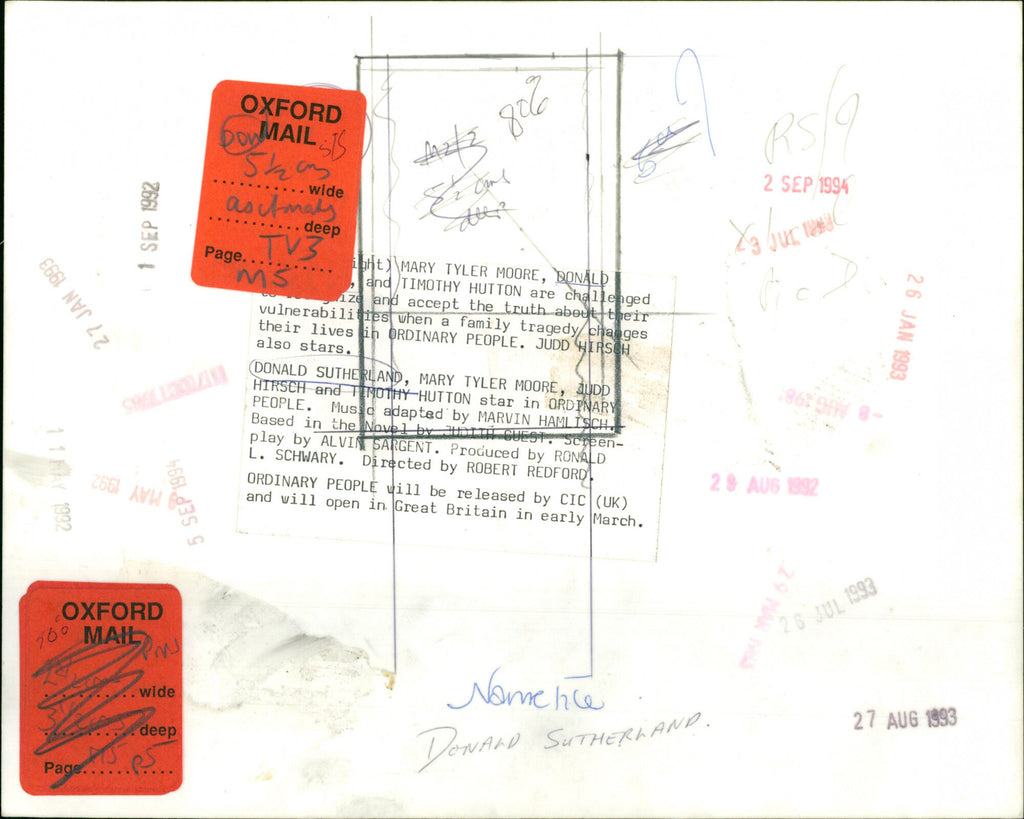 OXFORD
MAIL
5½ cms
wide
deep
Page TV3
M5
806
8½ cms
RS/9
2 SEP 1994
1 SEP 1992
27 JAN 1993
26 JAN 1993
ight) MARY TYLER MOORE, DONALD
, and TIMOTHY HUTTON are challenged
to recognize and accept the truth about their
vulnerabilities when a family tragedy changes
their lives in ORDINARY PEOPLE. JUDD HIRSCH
also stars.
DONALD SUTHERLAND, MARY TYLER MOORE, JUDD
HIRSCH and TIMOTHY HUTTON star in ORDINARY
PEOPLE. Music adapted by MARVIN HAMLISCH.
Based in the Novel by JUDITH GUEST. Screen-
play by ALVIN SARGENT. Produced by RONALD
L. SCHWARY. Directed by ROBERT REDFORD.
ORDINARY PEOPLE will be released by CIC (UK)
and will open in Great Britain in early March.
11 MAY 1992
MAY 1992
5 SEP 1994
29 AUG 1992
26 JUL 1993
OXFORD
MAIL
wide
deep
Page M5 P5
DONALD SUTHERLAND.
27 AUG 1993